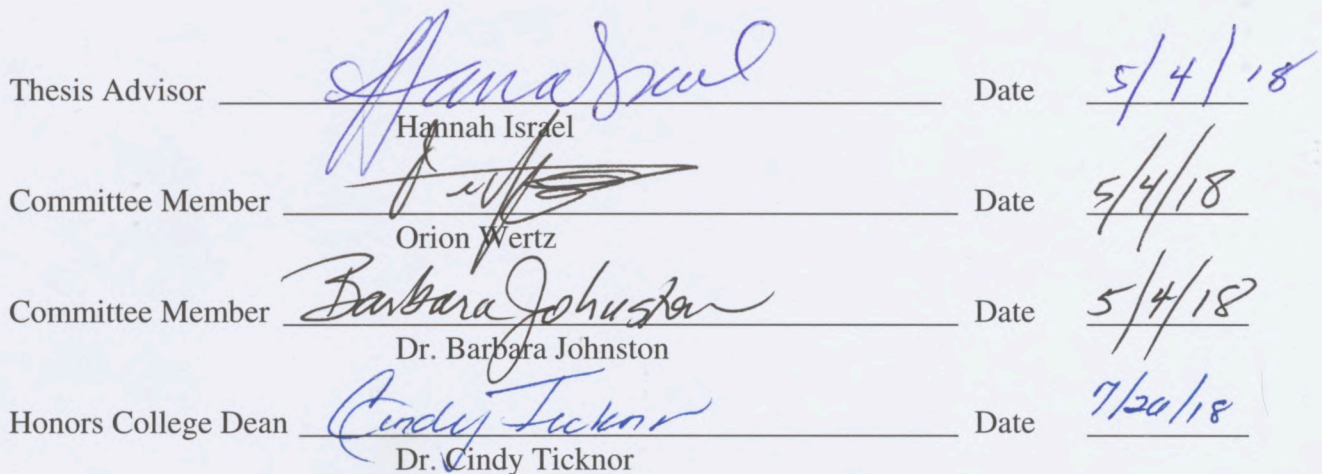 Thesis Advisor Hannah Israel Date 5/4/18
Hannah Israel
Committee Member Date 5/4/18
Orion Wertz
Committee Member Barbara Johnston Date 5/4/18
Dr. Barbara Johnston
Honors College Dean Cindy Ticknor Date
Dr. Cindy Ticknor